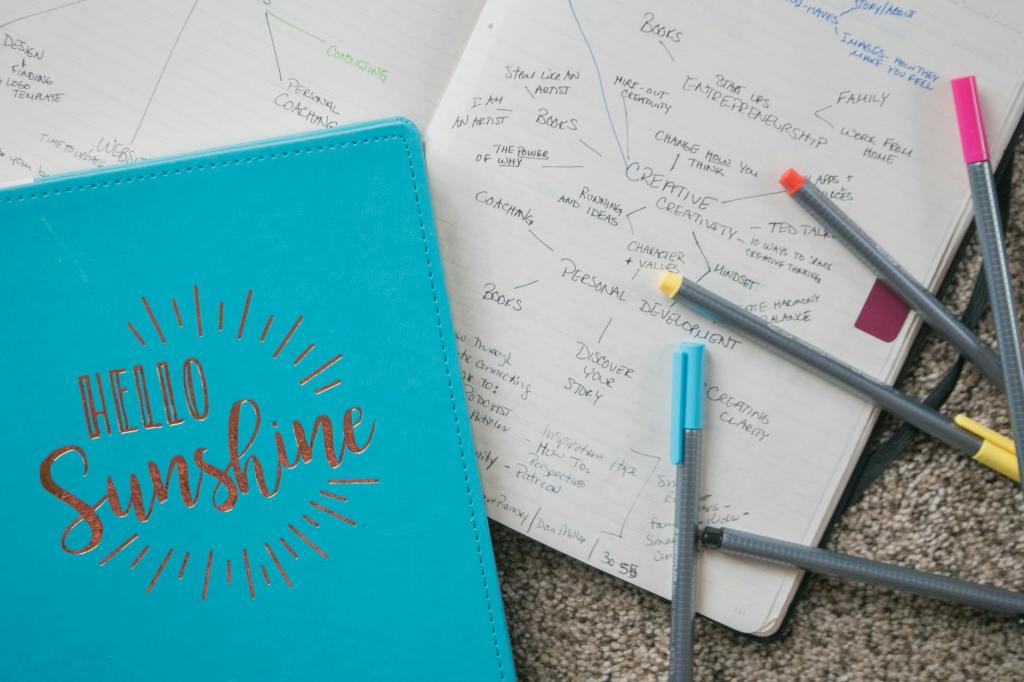 DESIGN
+
FINDING
LOGO
TEMPLATE
CONSULTING
PERSONAL
COACHING
TIME TO UPDATE
WEBSITE
HELLO
Sunshine
STORY/ABOUT
IMAGES - HOW THEY
MAKE YOU FEEL
BOOKS
START UPS
ENTREPRENEURSHIP
FAMILY
WORK FROM
HOME
STEAL LIKE AN
ARTIST
I AM
AN ARTIST
BOOKS
HIRE-OUT
CREATIVITY
THE POWER
OF WHY
CHANGE HOW YOU
THINK
CREATIVE
CREATIVITY
APPS +
TED TALKS
10 WAYS TO SPARK
CREATIVE THINKING
COACHING
RUNNING
AND IDEAS
CHARACTER
+ VALUES
MINDSET
HARMONY
BALANCE
PERSONAL
DEVELOPMENT
BOOKS
DISCOVER
YOUR
STORY
CREATING
CLARITY
Through
Connecting
TO:
PODCAST
Articles
Inspiration
HOW TOs
Perspective
- Patreon
Ramsey / Dan Miller / 30
55